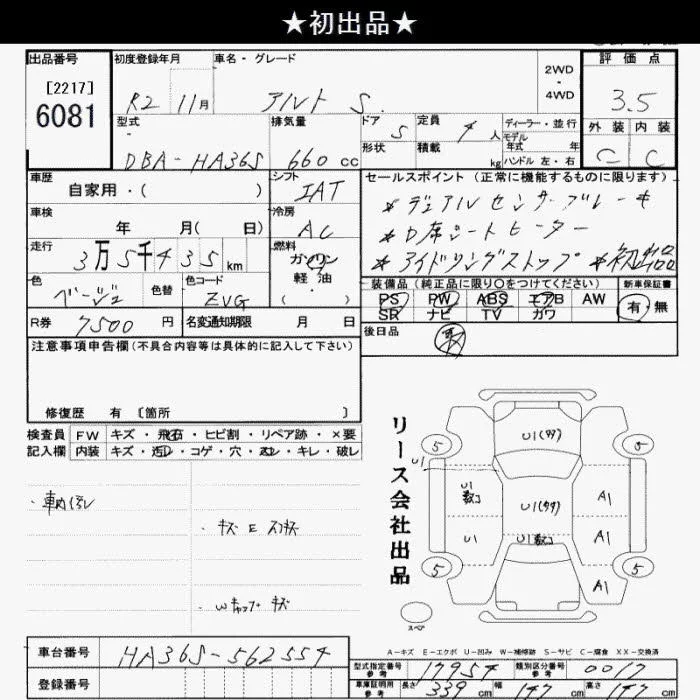 ★初出品★
出品番号
[2217]
6081
初度登録年月
R2 11月
車名・グレード
アルト S
2WD
・
4WD
評価点
3.5
外装 内装
C C
型式
DBA-HA36S
排気量
660 cc
ドア 5
形状
定員 4 人
積載 kg
ディーラー・並行
モデル
年式 年
ハンドル 左・右
車歴
自家用・( )
シフト
IAT
車検
年 月( 日)
冷房
AC
走行
3万5千435km
燃料
ガソリン
軽油・
( )
色
ベージュ
色替
色コード
ZVG
R券 7500円
名変通知期限 月 日
セールスポイント(正常に機能するものに限ります)
*デュアルセンサーブレーキ
*D席シートヒーター
*アイドリングストップ *初出品
装備品(純正品に限り○をつけてください)
PS PW ABS エアB AW
SR ナビ TV カワ
新車保証書
有・無
後日品
注意事項申告欄(不具合内容等は具体的に記入して下さい)
修復歴 有 〔箇所 〕
検査員 FW キズ・飛石・ヒビ割・リペア跡・×要
記入欄 内装 キズ・汚レ・コゲ・穴・スレ・キレ・破レ
・キズ E スリキズ
・Wキャップ キズ
リース会社出品
5 U1(タタ) 5
U1
U1
U1(タタ) A1
U1 U1 A1
5 A1 5
スペア
A-キズ E-エクボ U-凹み W-補修跡 S-サビ C-腐食 XX-交換済
車台番号 HA36S-562554
登録番号
型式指定番号 参考 17954
類別区分番号 参考 0017
車庫証明用 参考 長さ 339 cm 幅 147 cm 高さ 147 cm